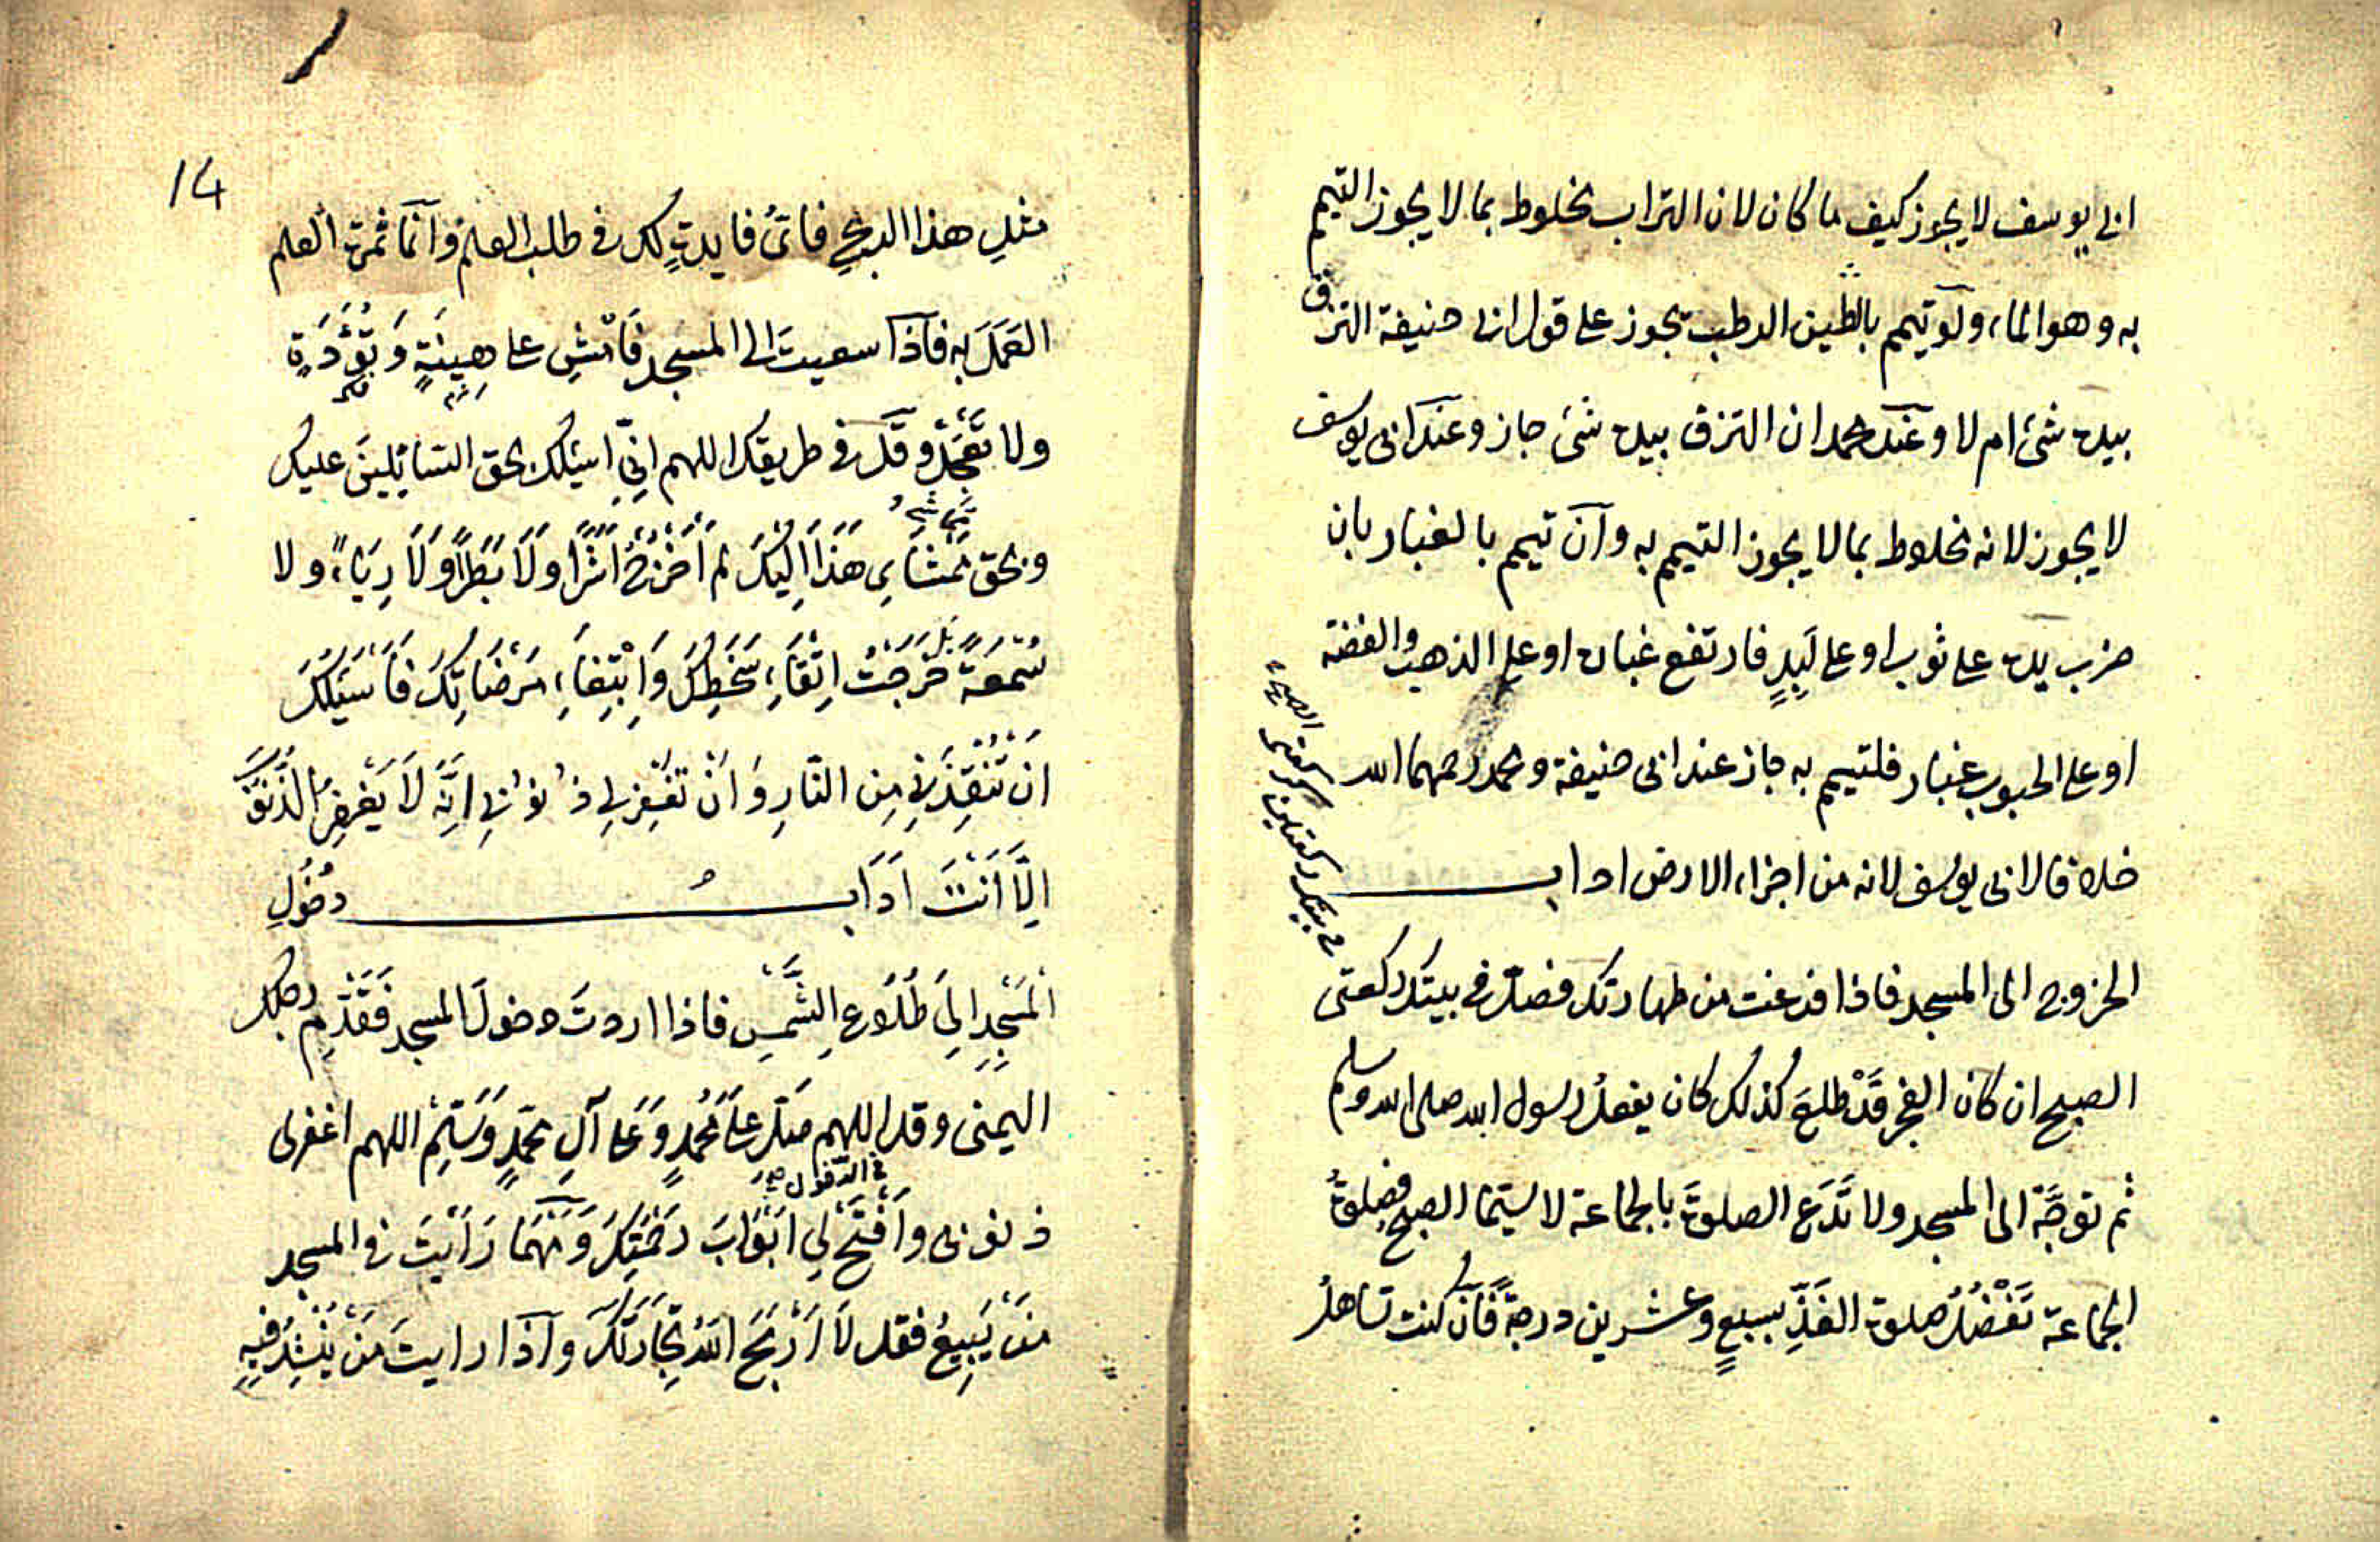 ابى يوسف لا يجوز كيف ما كان لان التراب مخلوط بما لا يجوز التيمم
به وهو الماء ولو تيمم بالطين الرطب يجوز على قول ابى حنيفة التزق
بيده شئ ام لا وعند محمد ان التزق بيده شئ جاز وعند ابى يوسف
لا يجوز لانه مخلوط بما لا يجوز التيمم به وان تيمم بالغبار بان
ضرب يده على ثوب او على لَبِدٍ فارتفع غباره او على الذهب والفضة
او على الحبوب غبار فلتيمم به جاز عند ابى حنيفة ومحمد رحمهما الله
خلافا لابى يوسف لانه من اجزاء الارض اداب
الخروج الى المسجد فاذا فرغت من طهارتك فصلّ فى بيتك ركعتى
الصبح ان كان الفجر قَدْ طلعَ كذلك كان يفعلُ رسول الله صلى الله وسلم
ثم توجَّهْ الى المسجد ولا تَدَعِ الصلوةَ بالجماعة لا سيّما الصبح فصلوةُ
الجماعة تَفْضُلُ صلوة الفَذِّ بسبعٍ وعشرين درجةً فان كنت تساهلُ
فى بيتك ركعتين
14
مثلِ هذا الربحِ فاىُّ فايدةٍ لك فى طلب العلم وانّما ثمرة العلم
العَمَلَ به فاذا سعيتَ الى المسجد فَامْشِ على هِينَةٍ وَتُؤَدَةٍ
ولا تَعْجَلْ وقل فى طريقك اللهم انّى اسئلك بحق السّائلينَ عليك
وبحق مَمْشَاىِ هَذَا اِلَيْكَ لم اَخْرُجْ اَشَرًا ولَا بَطَرًا وَلَا رِيَاءً ولا
سُمْعَةً بَل خَرَجْتُ اِتِّقَاءَ سَخَطِكَ وَاِبْتِغَاءَ مَرْضَاتِكَ فَاَسْئَلُكَ
اَنْ تُنْقِذَنِى مِن النّارِ وَاَنْ تغفِرلى ذُنُوبى اِنَّهُ لَا يَغْفِرُ الذُّنُوبَ
اِلَّا اَنْتَ اَدَابُ دخُولِ
الْمَسْجِدِ اِلَى طُلُوعِ الشَّمْسِ فاذا اردتَ دخولَ المسجد فَقَدِّمْ رجلك
اليمنى وقل اللهم صَلِّ عَلَى مُحمدٍ وَعَلى آلِ محمّدٍ وَسَلِّمْ اللهم اغفرلى
فى الدخول
ذنوبى وافْتَحْ لِى اَبْوَابَ رَحْمَتِكَ وَمَهْمَا رَاَيْتَ فى المسجد
مَنْ يَبِيعُ فقل لَا اَرْبَحَ اللهُ تِجَارَتَكَ واذا رايتَ مَنْ يَنْشِدُ فِيهِ